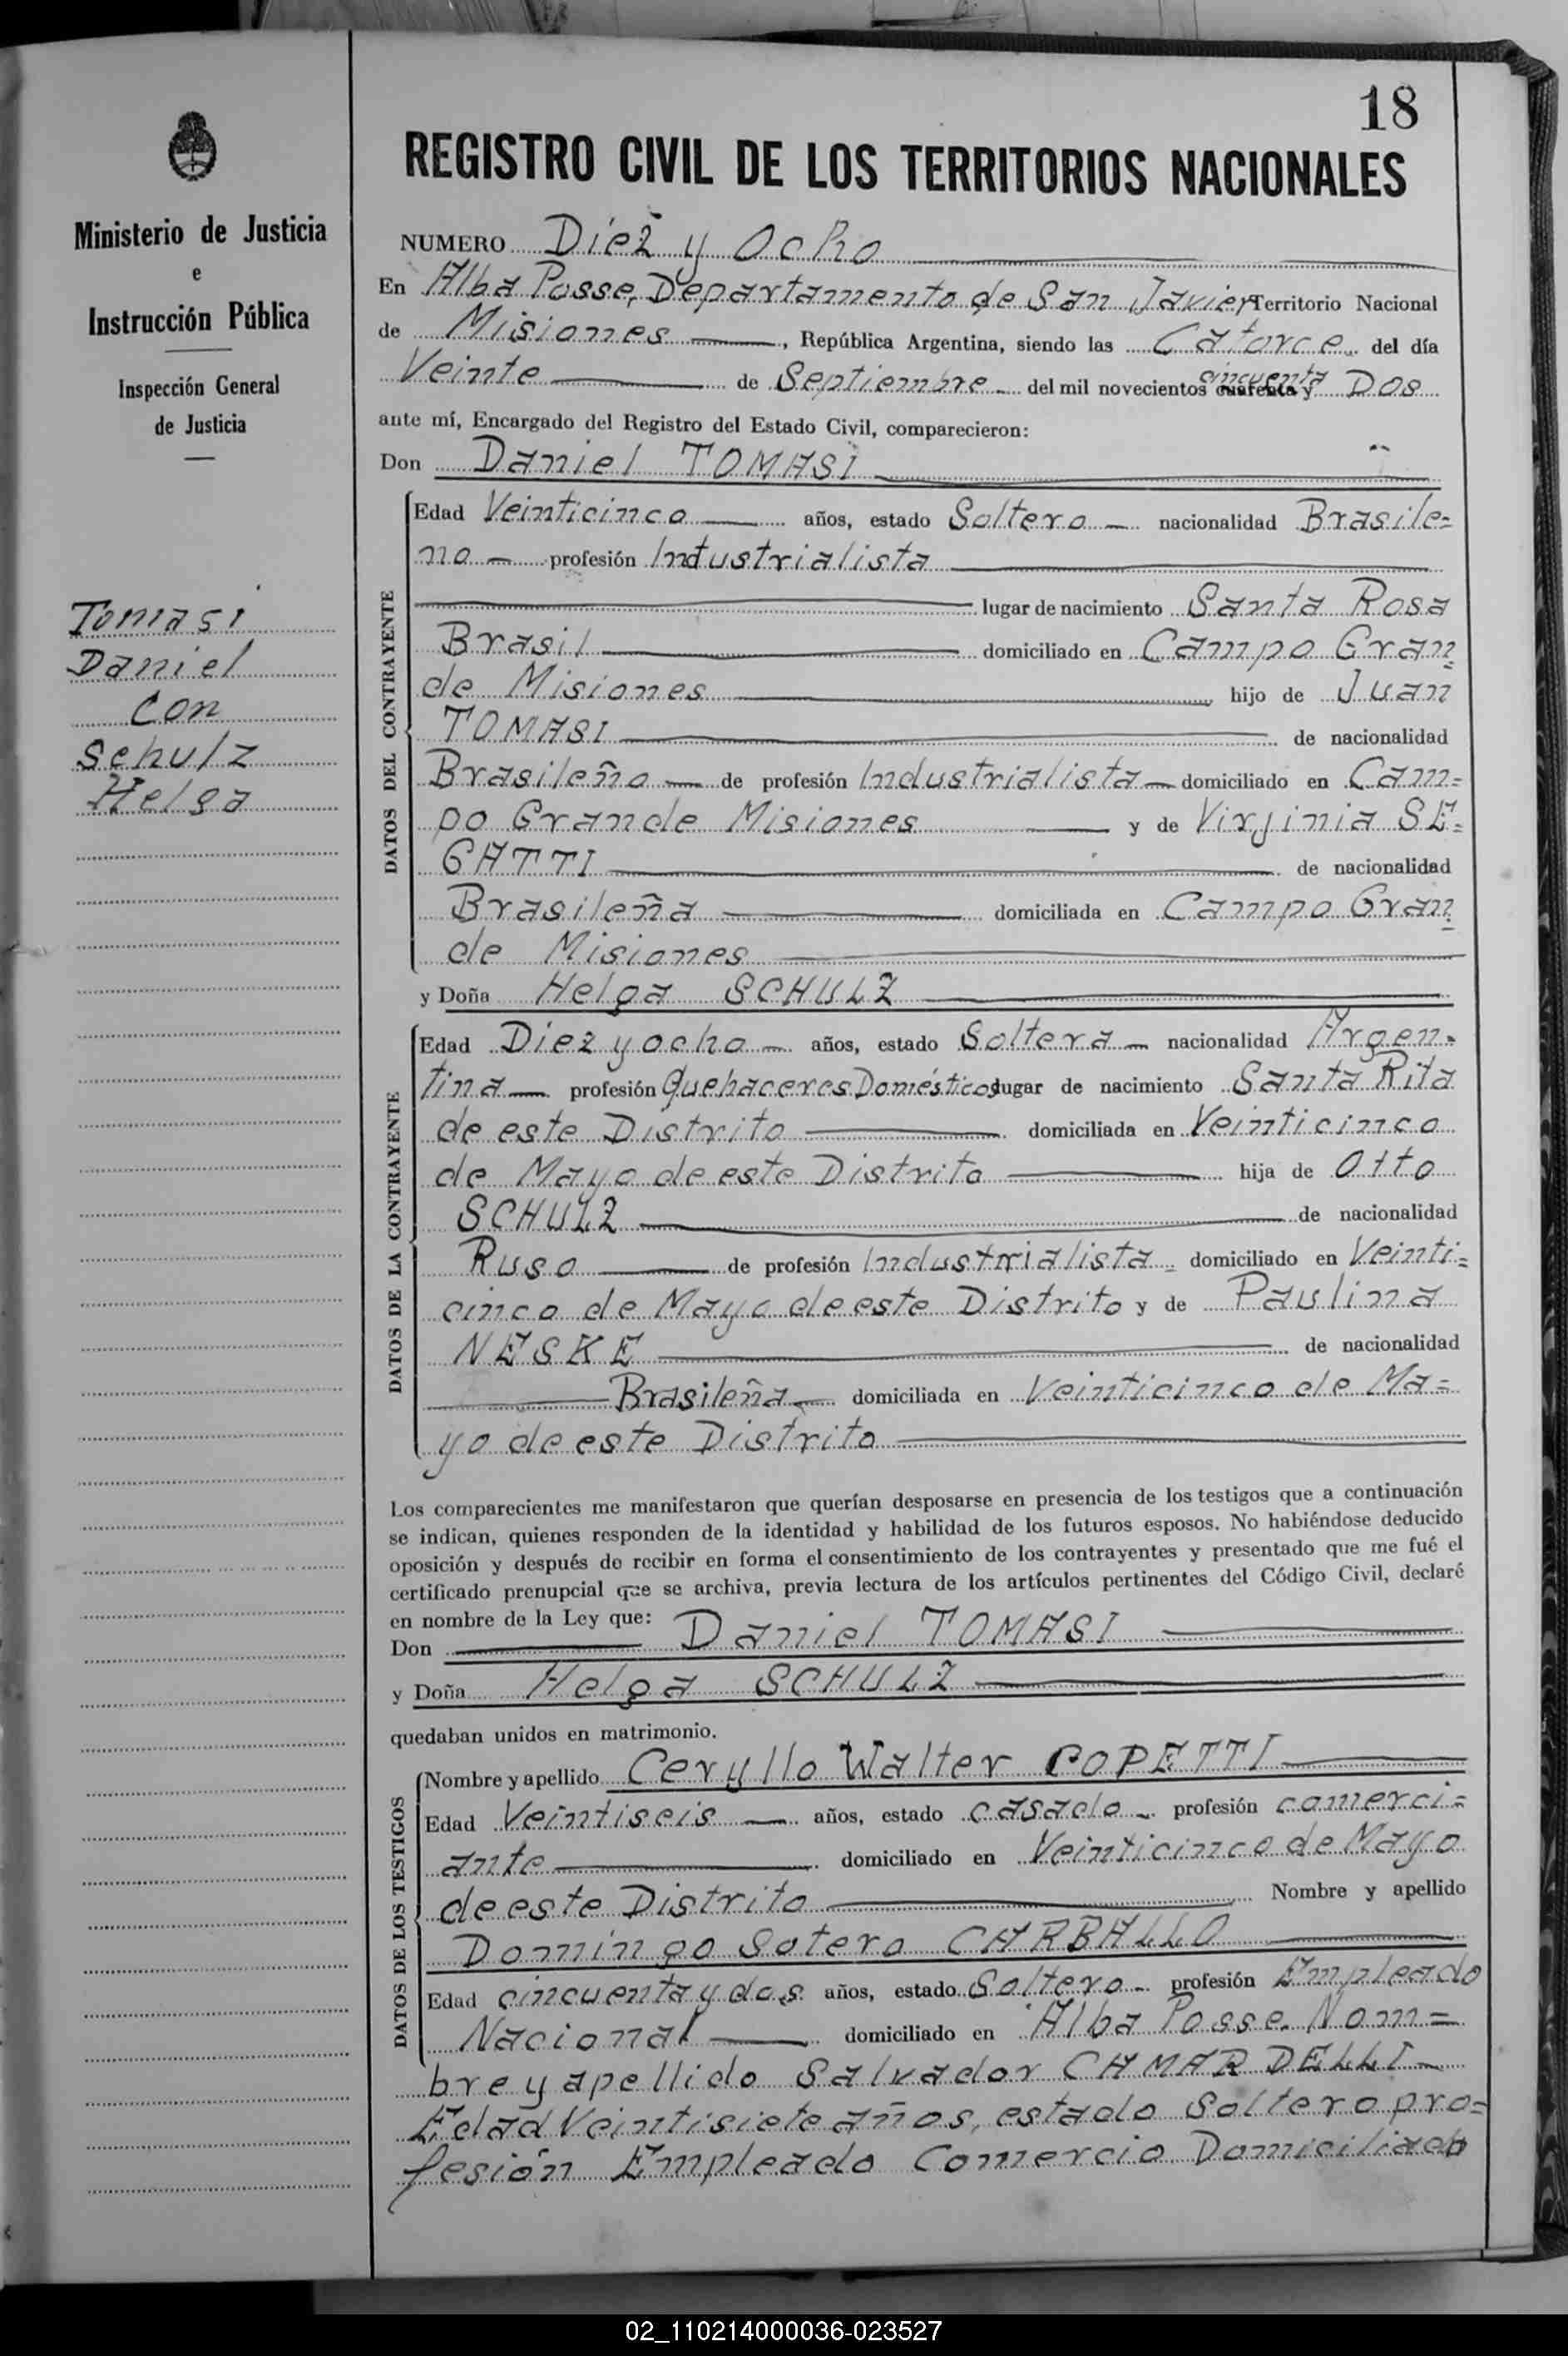 18
Ministerio de Justicia
e
Instrucción Pública
Inspección General
de Justicia
Tomasi
Daniel
Con
Schulz
Helga
REGISTRO CIVIL DE LOS TERRITORIOS NACIONALES
NUMERO Diez y Ocho
En Alba Posse, Departamento de San Javier, Territorio Nacional
de Misiones, República Argentina, siendo las Catorce del día
Veinte de Septiembre del mil novecientos cuarenta y cincuenta Dos
ante mí, Encargado del Registro del Estado Civil, comparecieron:
Don Daniel TOMASI
DATOS DEL CONTRAYENTE
Edad Veinticinco años, estado Soltero nacionalidad Brasile=
no profesión Industrialista
lugar de nacimiento Santa Rosa
Brasil domiciliado en Campo Gran=
de Misiones hijo de Juan
TOMASI de nacionalidad
Brasileño de profesión Industrialista domiciliado en Cam=
po Grande Misiones y de Virjinia SE=
GATTI de nacionalidad
Brasileña domiciliada en Campo Gran=
de Misiones
y Doña Helga SCHULZ
DATOS DE LA CONTRAYENTE
Edad Diez y ocho años, estado Soltera nacionalidad Argen=
tina profesión Quehaceres Domésticos lugar de nacimiento Santa Rita
de este Distrito domiciliada en Veinticinco
de Mayo de este Distrito hija de Otto
SCHULZ de nacionalidad
Ruso de profesión Industrialista domiciliado en Veinti=
cinco de Mayo de este Distrito y de Paulina
NESKE de nacionalidad
Brasileña domiciliada en Veinticinco de Ma=
yo de este Distrito
Los comparecientes me manifestaron que querían desposarse en presencia de los testigos que a continuación
se indican, quienes responden de la identidad y habilidad de los futuros esposos. No habiéndose deducido
oposición y después de recibir en forma el consentimiento de los contrayentes y presentado que me fué el
certificado prenupcial que se archiva, previa lectura de los artículos pertinentes del Código Civil, declaré
en nombre de la Ley que:
Don Daniel TOMASI
y Doña Helga SCHULZ
quedaban unidos en matrimonio.
DATOS DE LOS TESTIGOS
Nombre y apellido Ceryllo Walter COPETTI
Edad Veintiseis años, estado casado profesión comerci=
ante domiciliado en Veinticinco de Mayo
de este Distrito Nombre y apellido
Domingo Sotero CARBALLO
Edad cincuenta y dos años, estado Soltero profesión Empleado
Nacional domiciliado en Alba Posse. Nom=
bre y apellido Salvador CHAMARDELLI
Edad Veintisiete años, estado Soltero pro=
fesión Empleado Comercio Domiciliado
02_110214000036-023527